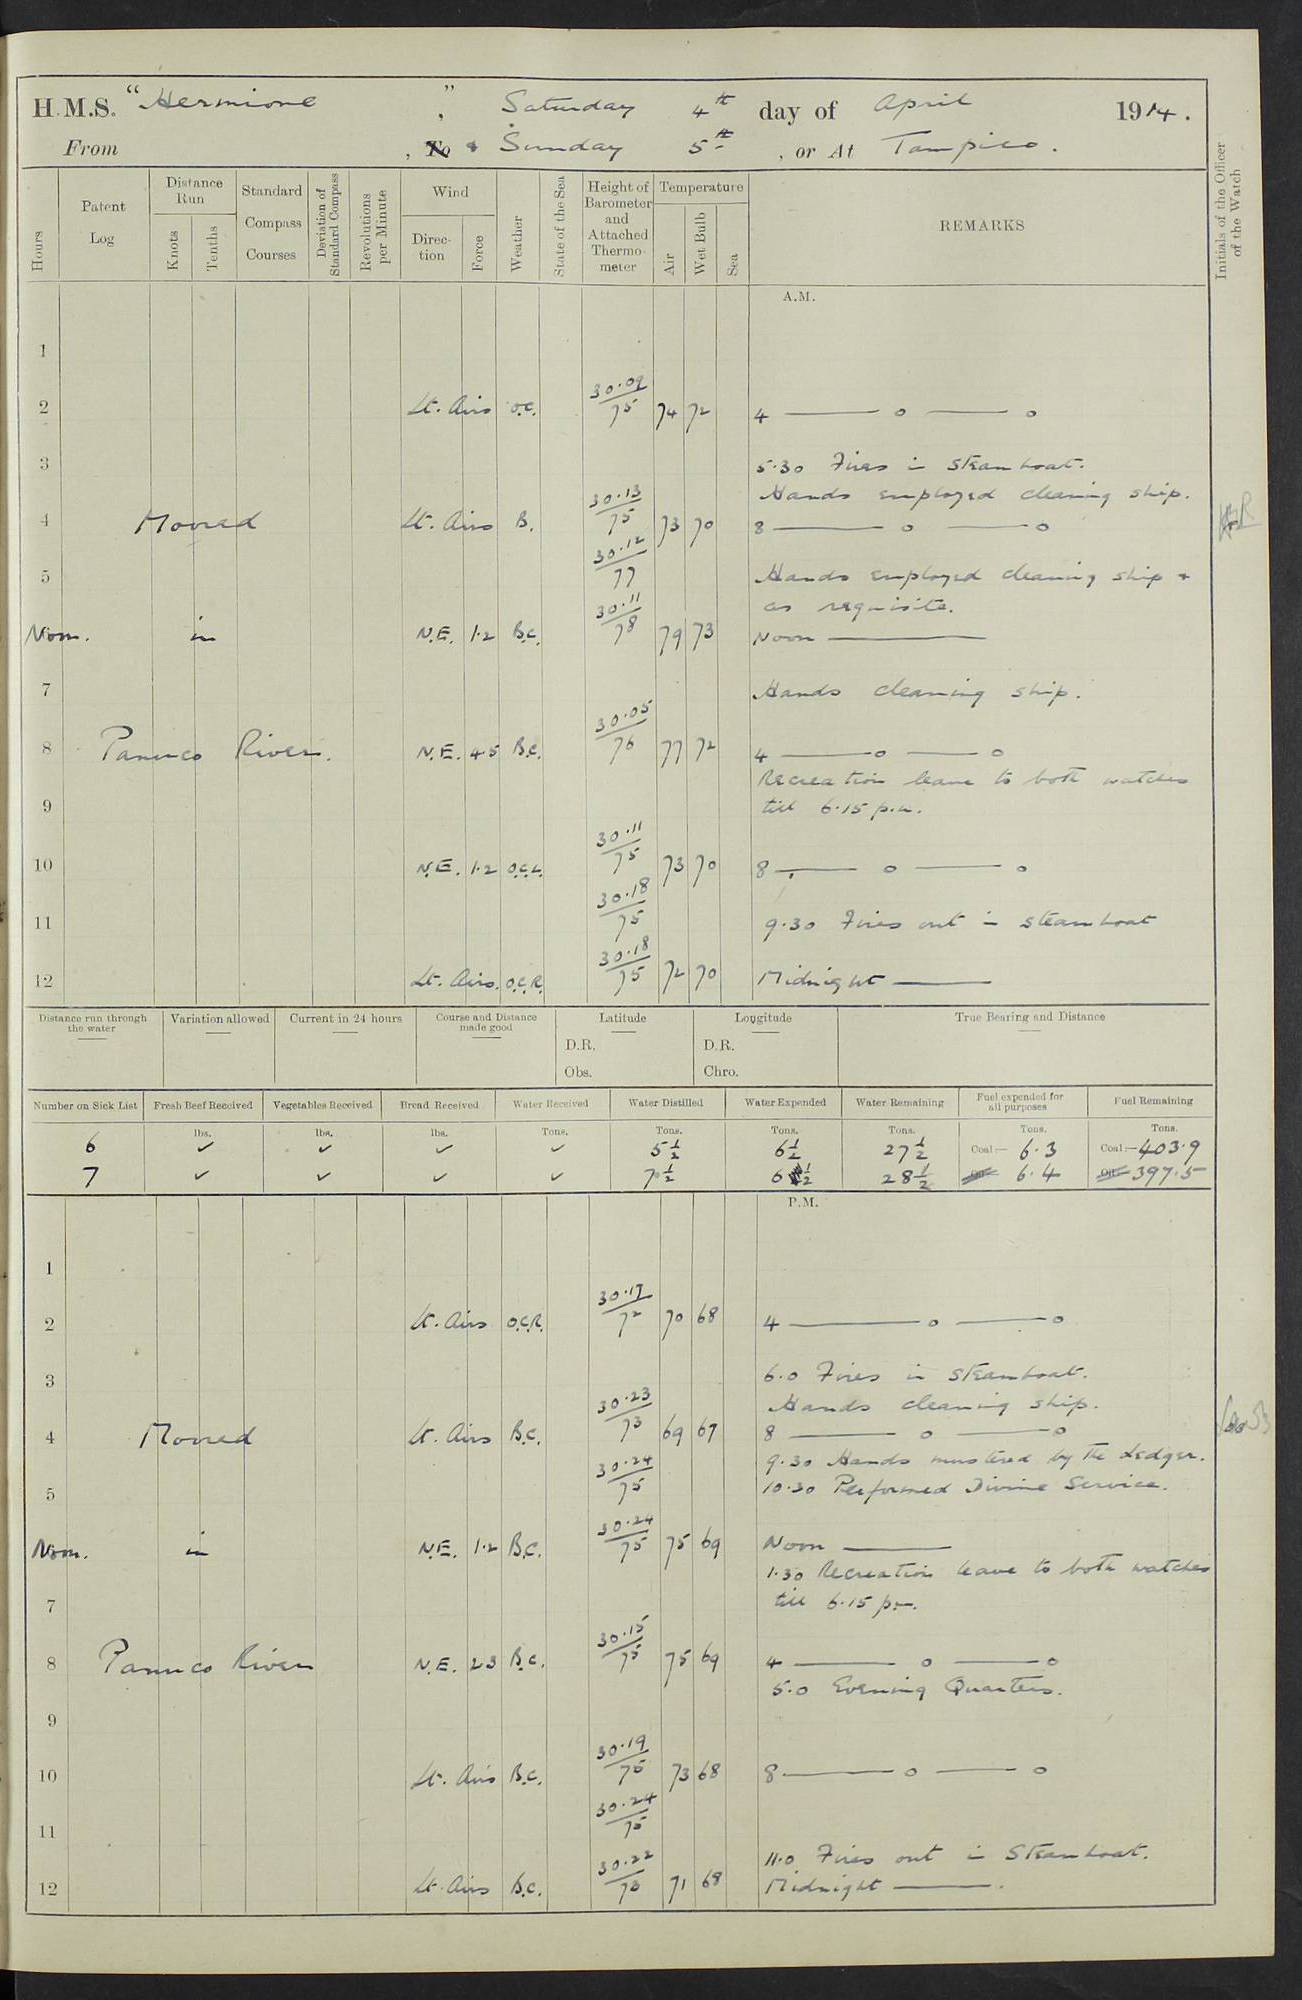 H.M.S. "Hermione", Saturday 4th day of April 1914.
From , To & Sunday 5th, or At Tampico.
Hours
Patent Log
Distance Run
Knots
Tenths
Standard Compass Courses
Deviation of Standard Compass
Revolutions per Minute
Wind
Direction
Force
Weather
State of the Sea
Height of Barometer and Attached Thermometer
Temperature
Air
Wet Bulb
Sea
REMARKS
Initials of the Officer of the Watch
A.M.
1
2 Lt. Airs O.C. 30.09/75 74 72 4 —— o —— o
3 5.30 Fires in steamboat.
Hands employed cleaning ship.
4 Moored Lt. Airs B. 30.13/75 73 70 8 —— o —— o
5 30.12/77 Hands employed cleaning ship &
as requisite.
Noon. in N.E. 1.2 B.C. 30.11/78 79 73 Noon ——
7 Hands cleaning ship.
8 Panuco River. N.E. 4.5 B.C. 30.05/76 77 72 4 —— o —— o
Recreation leave to both watches
9 till 6.15 p.m.
10 N.E. 1.2 O.C.L. 30.11/75 73 70 8 —— o —— o
11 30.18/75 9.30 Fires out in steamboat
12 Lt. Airs. O.C.R. 30.18/75 72 70 Midnight ——
Distance run through the water
Variation allowed
Current in 24 hours
Course and Distance made good
Latitude
D.R.
Obs.
Longitude
D.R.
Chro.
True Bearing and Distance
Number on Sick List Fresh Beef Received Vegetables Received Bread Received Water Received Water Distilled Water Expended Water Remaining Fuel expended for all purposes Fuel Remaining
lbs. lbs. lbs. Tons. Tons. Tons. Tons. Tons. Tons.
6 ✓ ✓ ✓ ✓ 5½ 6½ 27½ Coal:— 6.3 Coal:— 403.9
7 ✓ ✓ ✓ ✓ 7½ 6½ 28½ Oil 6.4 Oil 397.5
P.M.
1
2 Lt. Airs O.C.R. 30.17/72 70 68 4 —— o —— o
3 6.0 Fires in steamboat.
Hands cleaning ship.
4 Moored Lt. Airs B.C. 30.23/73 69 67 8 —— o —— o
9.30 Hands mustered by the Ledger.
5 30.24/75 10.30 Performed Divine Service.
Noon. in N.E. 1.2 B.C. 30.24/75 75 69 Noon ——
1.30 Recreation leave to both watches
7 till 6.15 pm.
8 Panuco River N.E. 2.3 B.C. 30.15/75 75 69 4 —— o —— o
5.0 Evening Quarters.
9
10 Lt. Airs B.C. 30.19/75 73 68 8 —— o —— o
11 30.24/75
11.0 Fires out in Steamboat.
12 Lt. Airs B.C. 30.22/73 71 68 Midnight ——.